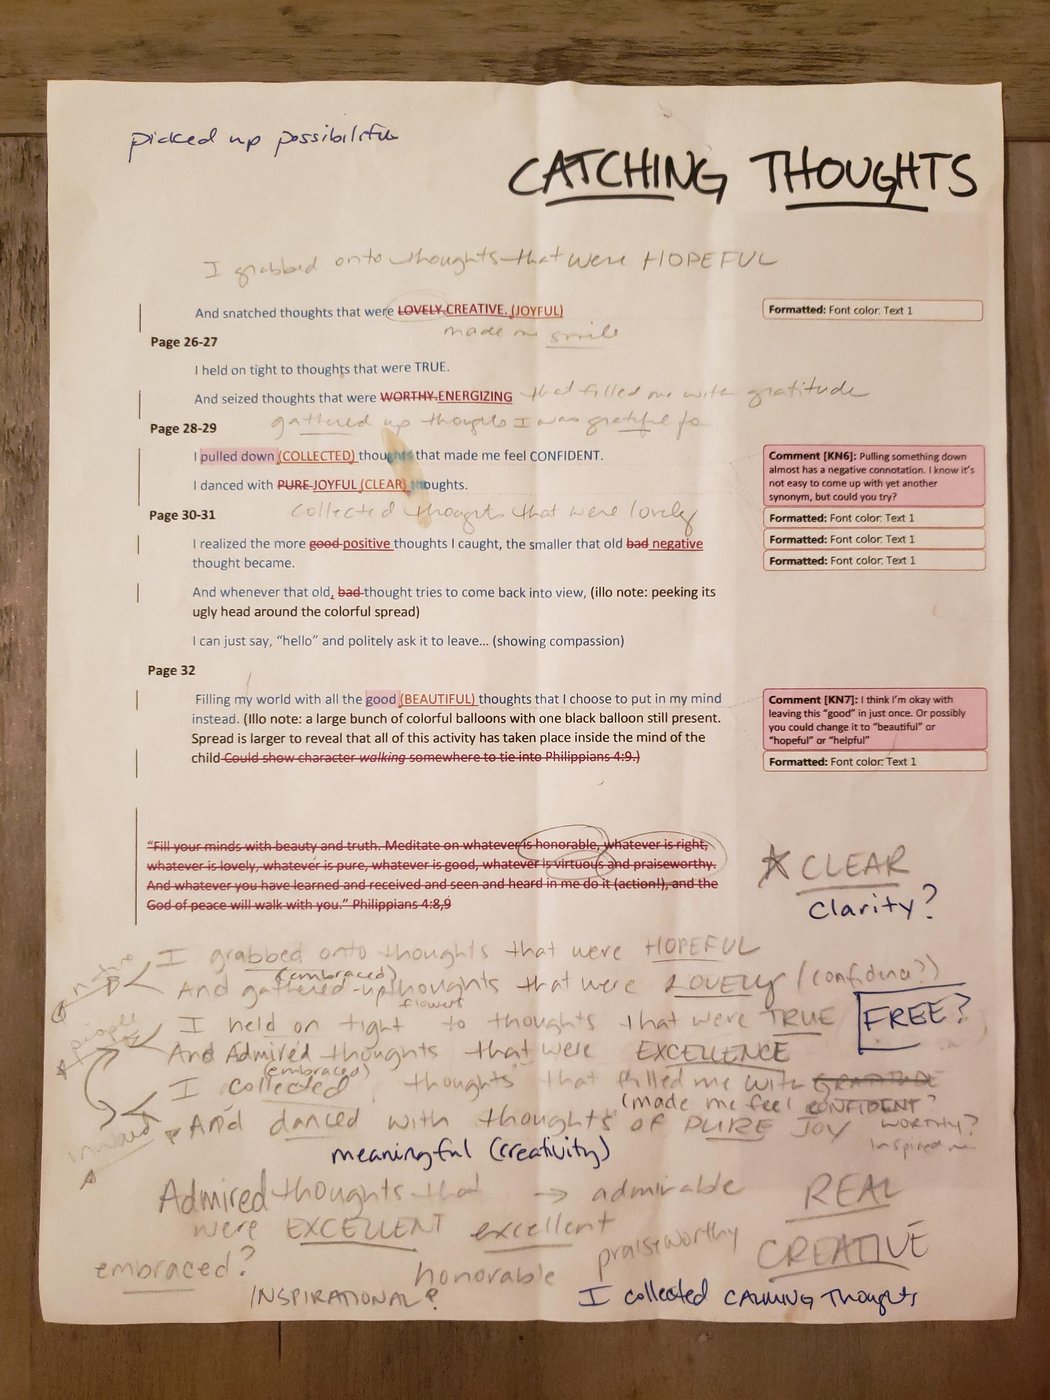 picked up possibilities
CATCHING THOUGHTS
I grabbed onto thoughts that were HOPEFUL
And snatched thoughts that were LOVELY. CREATIVE. (JOYFUL)
Formatted: Font color: Text 1
made me smile
Page 26-27
I held on tight to thoughts that were TRUE.
And seized thoughts that were WORTHY. ENERGIZING that filled me with gratitude
gathered up thoughts I was grateful for
Page 28-29
I pulled down (COLLECTED) thoughts that made me feel CONFIDENT.
I danced with PURE JOYFUL (CLEAR) thoughts.
Comment [KN6]: Pulling something
down almost has a negative connotation. I know it's
not easy to come up with yet another
synonym, but could you try?
collected thoughts that were lovely
Page 30-31
Formatted: Font color: Text 1
Formatted: Font color: Text 1
Formatted: Font color: Text 1
I realized the more good positive thoughts I caught, the smaller that old bad negative
thought became.
And whenever that old, bad thought tries to come back into view, (illo note: peeking its
ugly head around the colorful spread)
I can just say, "hello" and politely ask it to leave... (showing compassion)
Page 32
Filling my world with all the good (BEAUTIFUL) thoughts that I choose to put in my mind
instead. (Illo note: a large bunch of colorful balloons with one black balloon still present.
Spread is larger to reveal that all of this activity has taken place inside the mind of the
child Could show character walking somewhere to tie into Philippians 4:9.)
Comment [KN7]: I think I'm okay with
leaving this "good" in just once. Or possibly
you could change it to "beautiful" or
"hopeful" or "helpful"
Formatted: Font color: Text 1
"Fill your minds with beauty and truth. Meditate on whatever is honorable, whatever is right,
whatever is lovely, whatever is pure, whatever is good, whatever is virtuous and praiseworthy.
And whatever you have learned and received and seen and heard in me do it (action!), and the
God of peace will walk with you." Philippians 4:8,9
CLEAR
Clarity?
I grabbed onto thoughts that were HOPEFUL
(embraced)
And gathered-up thoughts that were LOVELY (confidence?)
flowers
I held on tight to thoughts that were TRUE
FREE?
people
And Admired thoughts that were EXCELLENCE
(embraced)
I collected thoughts that filled me with GRATITUDE
(made me feel CONFIDENT?
inward
And danced with thoughts of PURE JOY
WORTHY?
meaningful (creativity)
Admired thoughts that
were EXCELLENT
→ admirable
excellent
praiseworthy
REAL
CREATIVE
embraced?
honorable
INSPIRATIONAL?
I collected CALMING Thoughts